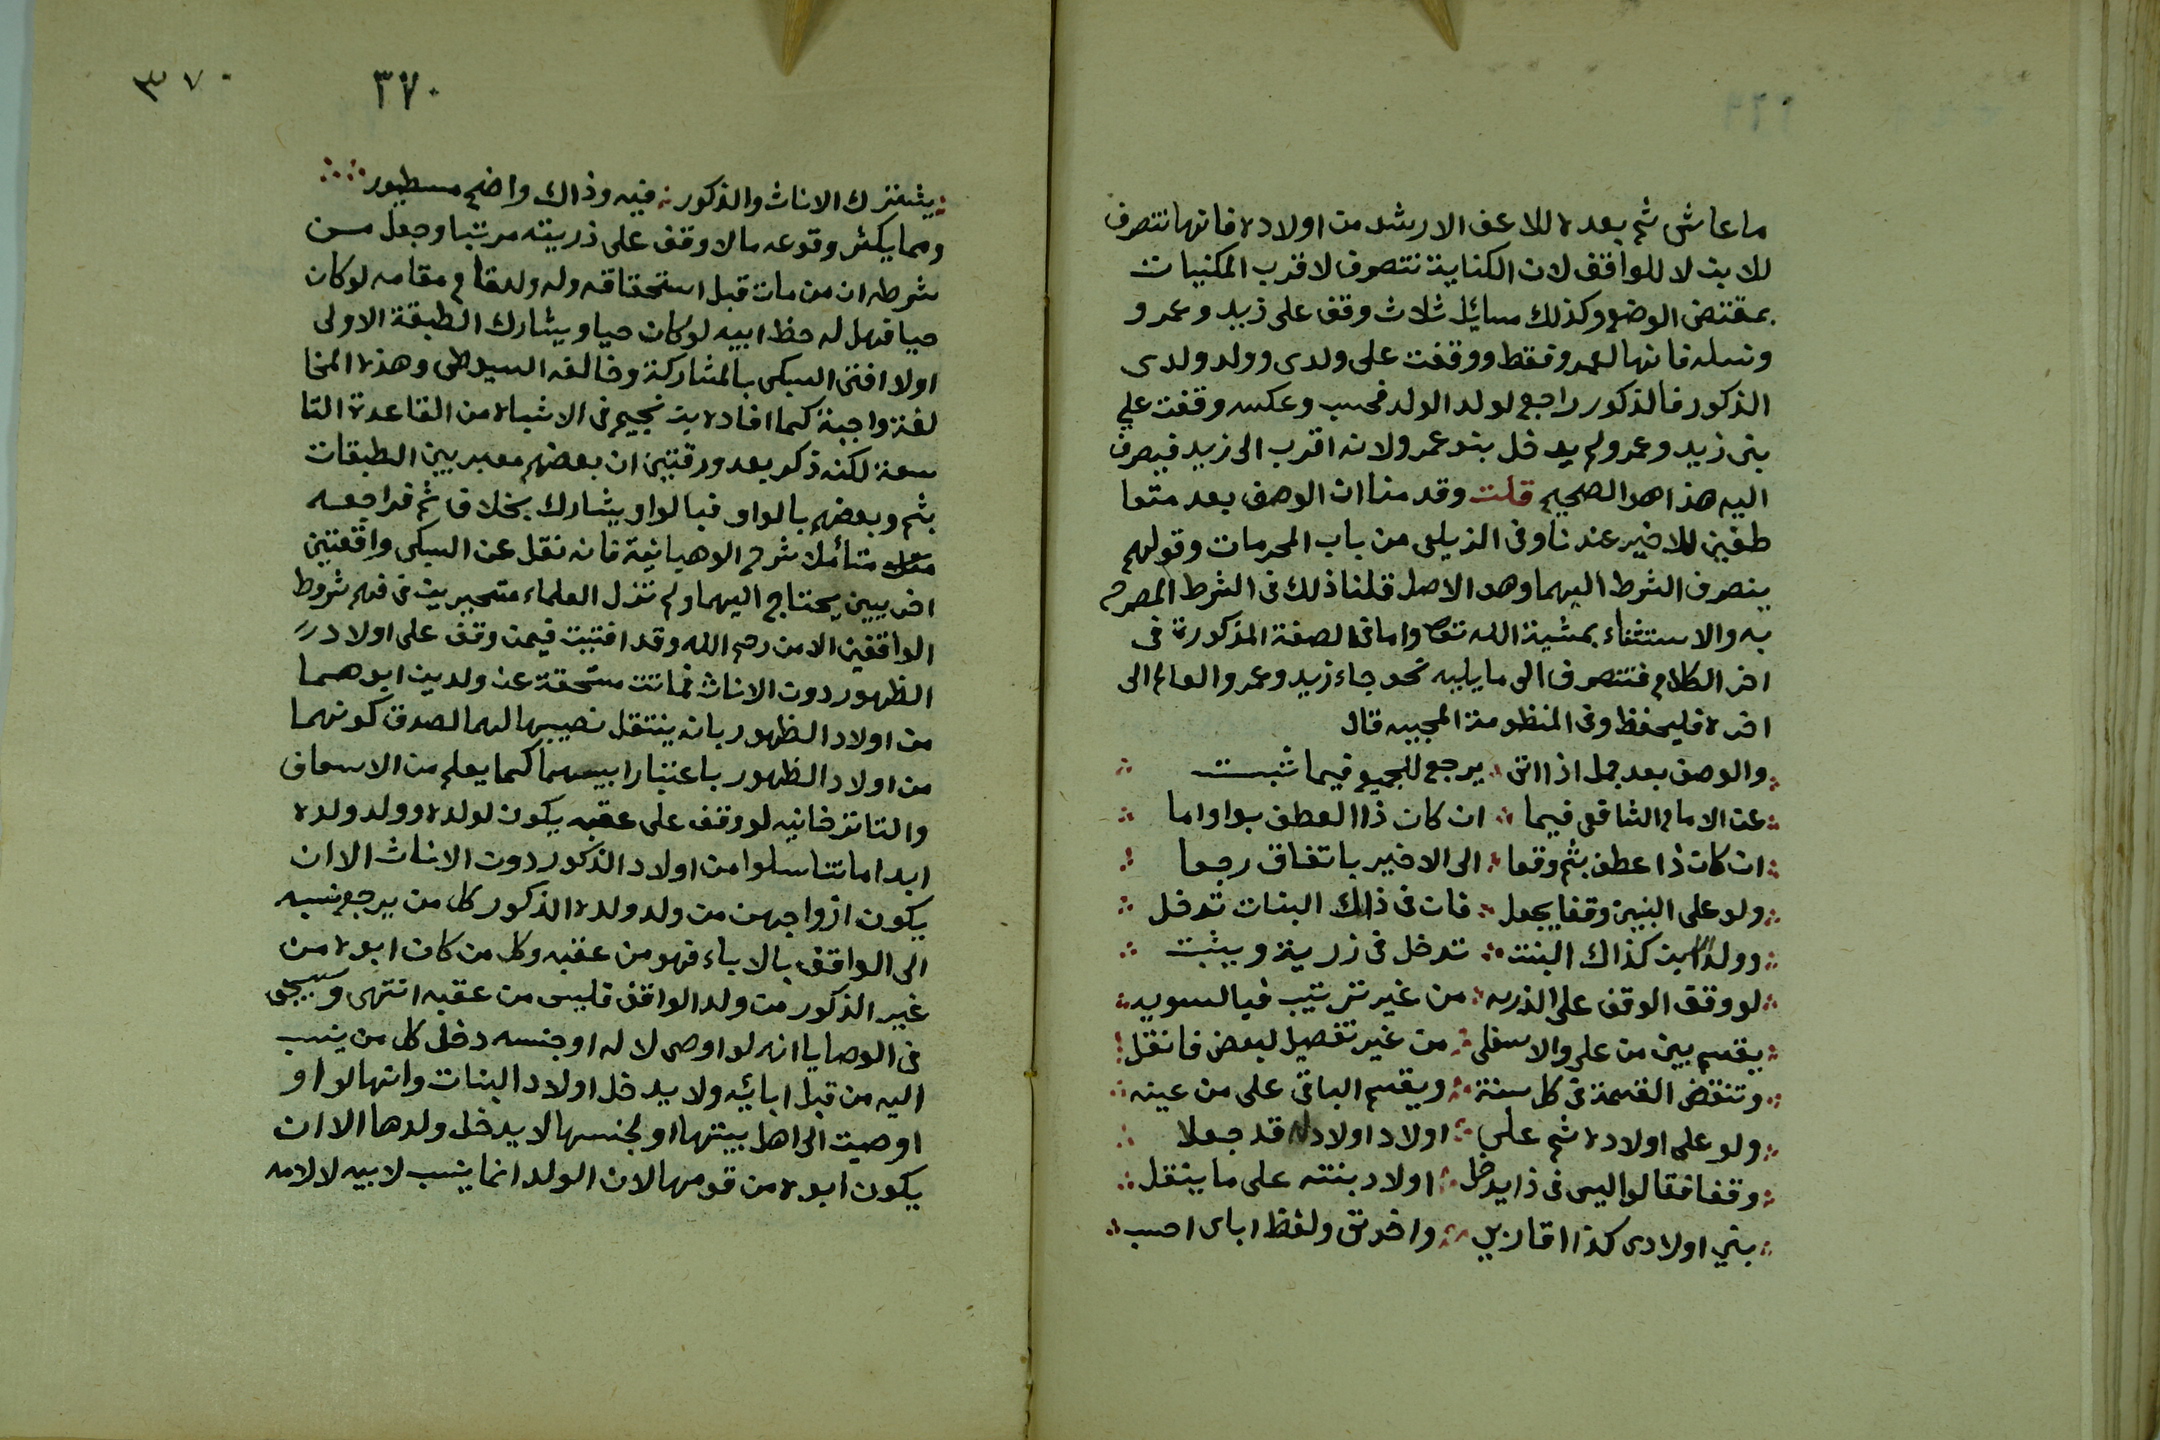 ما عاش ثم بعده للاعف الارشد من اولاده فانها تتصرف
للابن لا للواقف لان الكناية تتصرف لاقرب المكنيات
بمقتضى الوضع وكذلك مسائل ثلاث وقف على زيد وعمرو
ونسله فانها لعمرو فقط ووقفت على ولدى وولد ولدى
الذكور فالذكور راجع لولد الولد فحسب وعكسه وقفت علي
بنى زيد وعمرو لم يدخل بنو عمرو لانه اقرب الى زيد فيصرف
اليه هذا هو الصحيح قلت وقدمنا ان الوصف بعد متعا
طفين للاخير عندنا وفى الزيلعى من باب المحرمات وقولهم
ينصرف الشرط اليهما وهو الاصل قلنا ذلك فى الشرط المصرح
به والاستثناء بمشية الله تعالى واما فى الصفة المذكورة فى
اخر الكلام فتنصرف الى ما يليه نحو جاء زيد وعمرو العالم الى
اخره فليحفظ وفى المنظومة المجيبه قال
والوصف بعد جمل اذا اتى يرجع للجميع فيما ثبت
عن الامام الشافعى فيما ان كان ذا العطف بواو اما
ان كان ذا عطف بثم وقعا الى الاخير باتفاق رجعا
ولو على البنين وقفا يجعل فان فى ذلك البنات تدخل
وولد الابن كذاك البنت تدخل فى زرية ويثبت
لو وقف الوقف على الذريه من غير ترتيب فبالسويه
يقسم بين من على والاسفلى من غير تفضيل لبعض فانقل
وتنقض القسمة فى كل سنة ويقسم الباقى على من عينه
ولو على اولاده ثم على اولاد اولاد له قد جعلا
وقفا فقالوا ليس فى ذا يدخل اولاد بنته على ما ينقل
بني اولادى كذا اقاربي واخوتى ولفظ اباى احسب
٣٧٠
٣٧٠
يشترك الاناث والذكور فيه وذاك واضح مسطور
ومما يكثر وقوعه ما لو وقف على ذريته مرتبا وجعل من
شرطه ان من مات قبل استحقاقه وله ولد قام مقامه لو كان
حيا فهل له حظ ابيه لو كان حيا ويشارك الطبقة الاولى
اولا افتى السبكى بالمشاركة وخالفه السيوطى وهذه المخا
لفة واجبة كما افاده بن نجيم فى الاشباه من القاعدة التا
سعة لكنه ذكر بعد ورقتين ان بعضهم معبر بين الطبقات
بثم وبعضهم بالواو فبالواو يشارك بخلاف ثم فراجعه
متأملا شرح الوهبانية فانه نقل عن السبكى واقعتين
اخريين يحتاج اليهما ولم تزل العلماء متحيرين فى فهم شروط
الواقفين الا من رحم الله وقد افتيت فيمن وقف على اولاد
الظهور دون الاناث فماتت مستحقة عن ولدين ابوهما
من اولاد الظهور بانه ينتقل نصيبها لهما لصدق كونهما
من اولاد الظهور باعتبار ابيهما كما يعلم من الاسعاف
والتاترخانيه لو وقف على عقبه يكون لولده وولد ولده
ابدا ما تناسلوا من اولاد الذكور دون الاناث الا ان
يكون ازواجهن من ولد ولده الذكور كل من يرجع نسبه
الى الواقف بالاباء فهو من عقبه وكل من كان ابوه من
غير الذكور من ولد الواقف فليس من عقبه انتهى وسيجى
فى الوصايا انه لو اوصى لاله او جنسه دخل كل من ينسب
اليه من قبل ابائه ولا يدخل اولاد البنات وانها لو ا و
اوصيت الى اهل بيتها او لجنسها لا يدخل ولدها الا ان
يكون ابوه من قومها لان الولد انما ينسب لابيه لا لامه